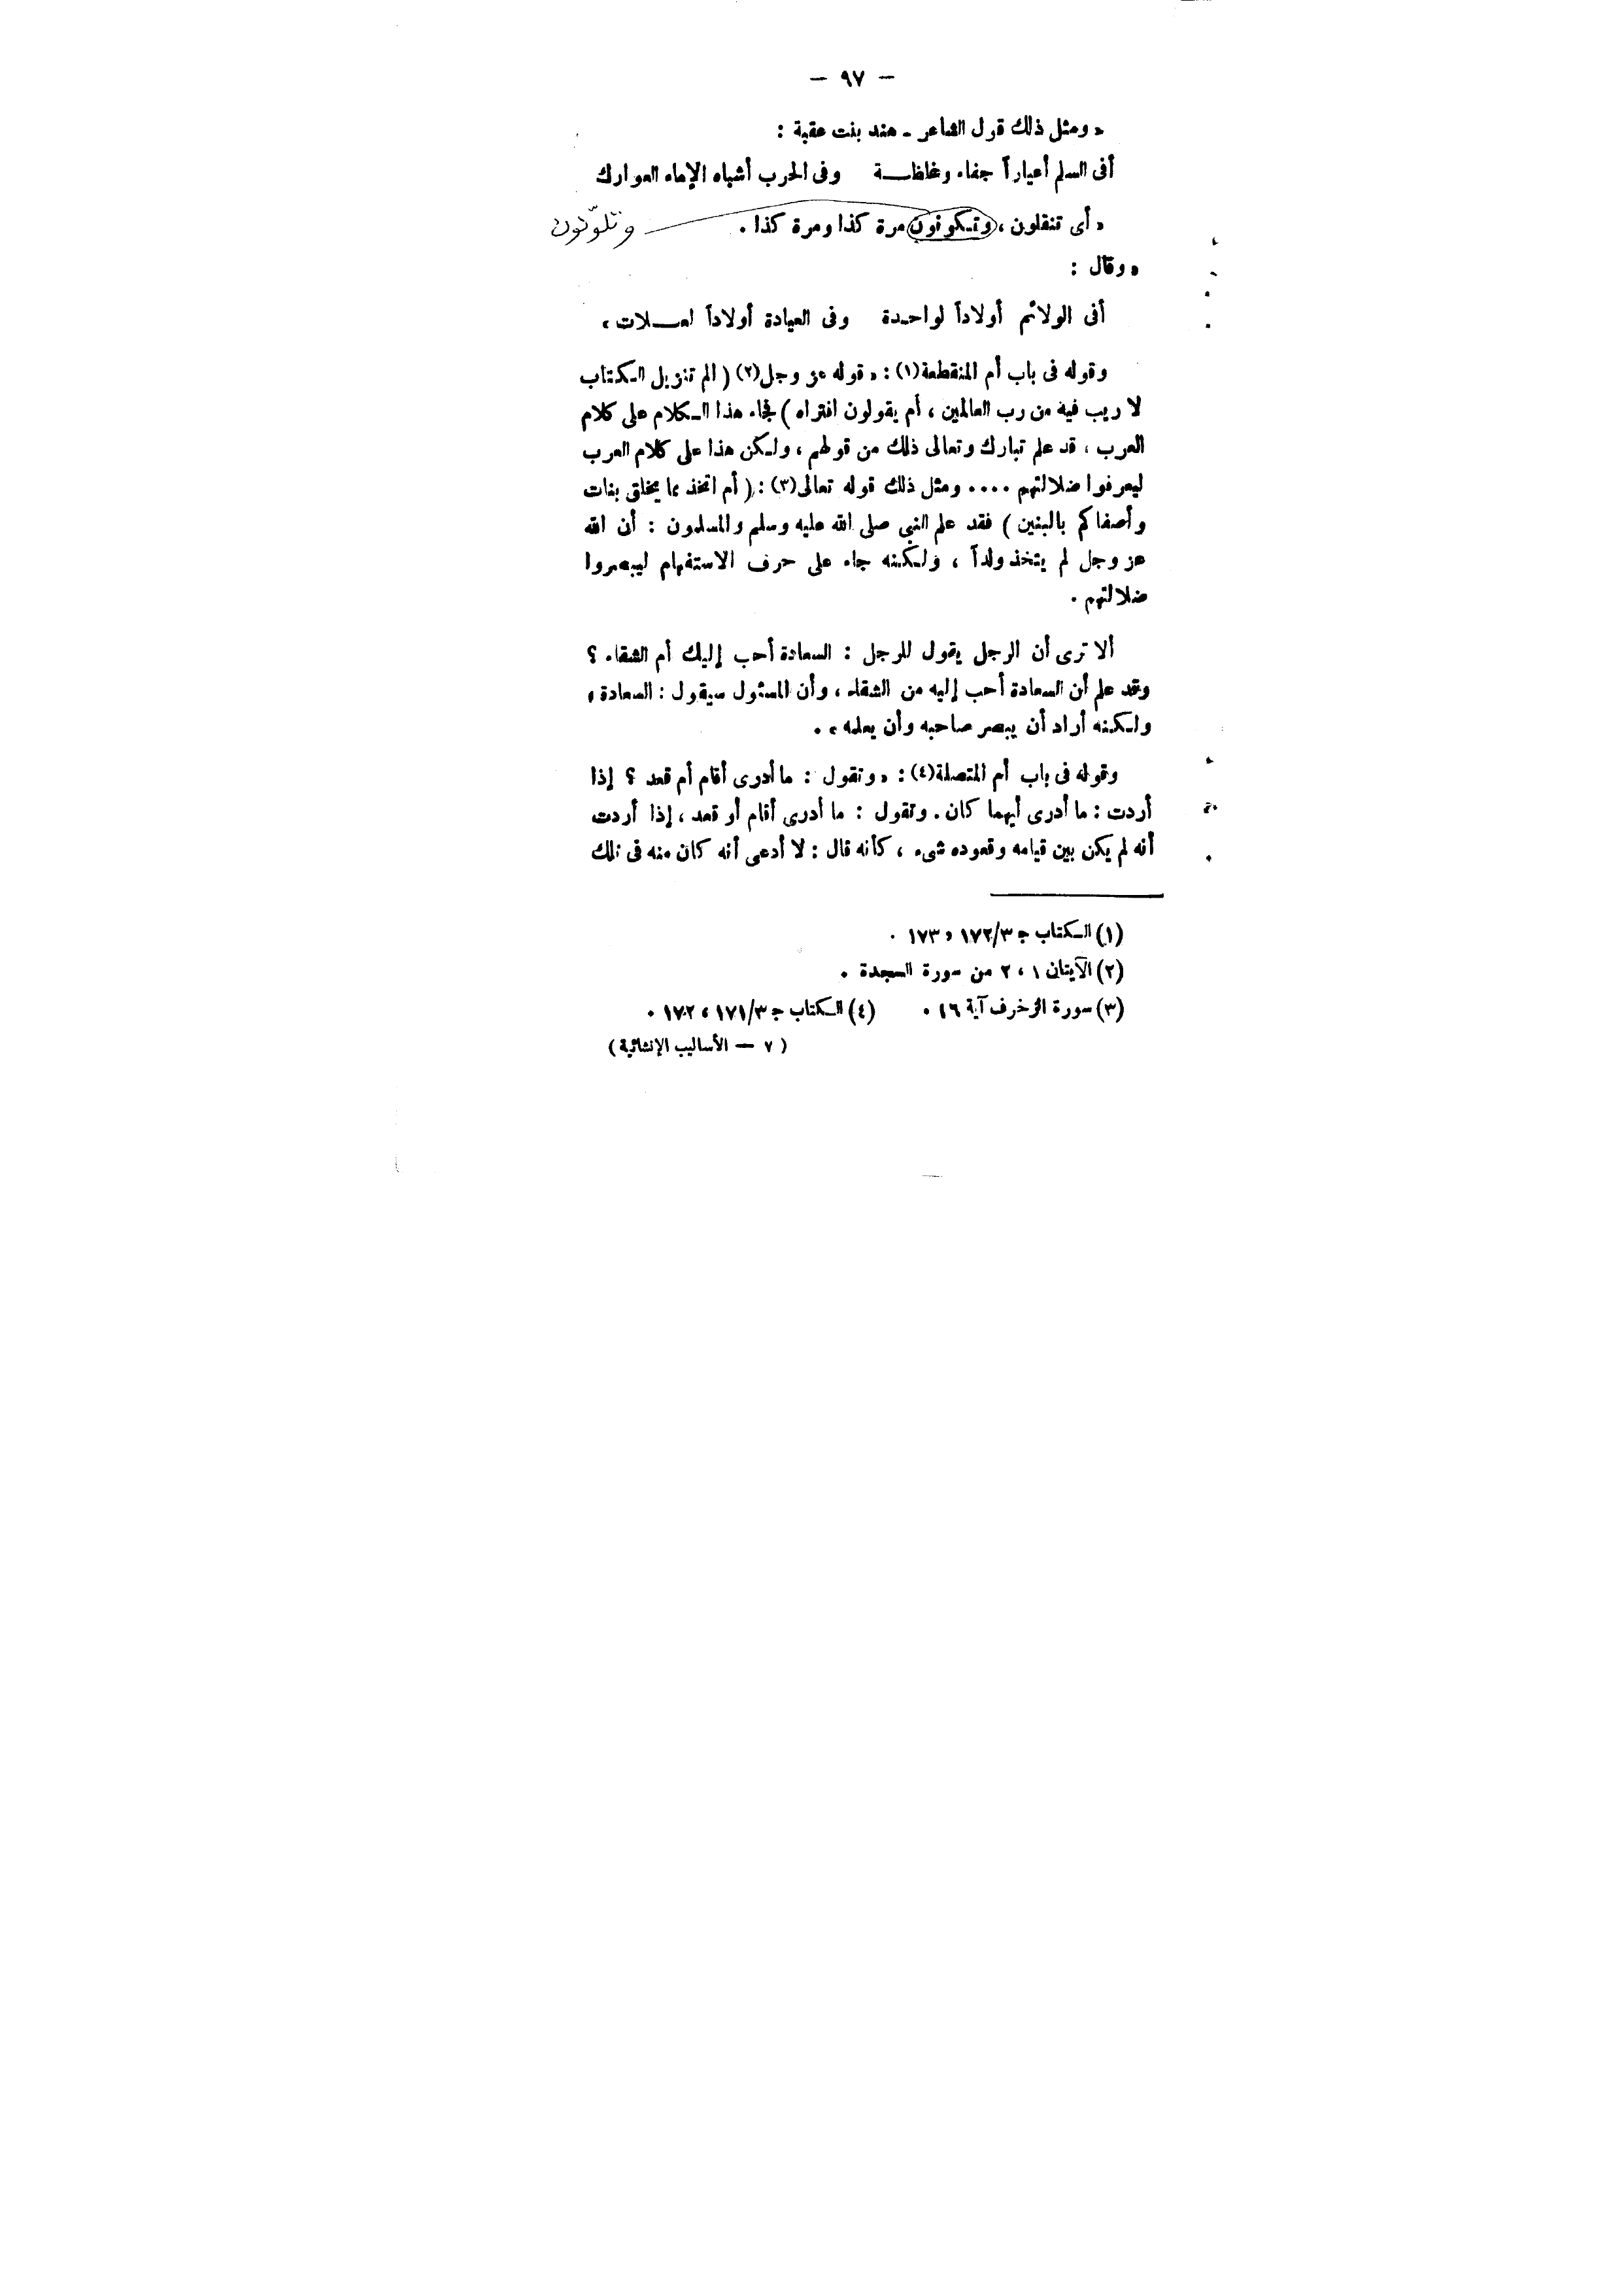 — ٩٧ —
« ومثل ذلك قول الشاعر - هند بنت عقبة :
أفى السلم أعياراً جفاء وغلظـــة وفى الحرب أشباه الإماء العوارك
« أى تنقلون ، وتـكونون مرة كذا ومرة كذا . وتلوّنون
« وقال :
أفى الولائم أولاداً لواحـدة وفى العيادة أولاداً لعـــلات »
وقوله فى باب أم المنقطعة(١) : « قوله عز وجل(٢) ( الم تنزيل الـكتاب
لا ريب فيه من رب العالمين ، أم يقولون افتراه ) فجاء هذا الـكلام على كلام
العرب ، قد علم تبارك وتعالى ذلك من قولهم ، ولـكن هذا على كلام العرب
ليعرفوا ضلالتهم .... ومثل ذلك قوله تعالى(٣) : ( أم اتخذ مما يخلق بنات
وأصفاكم بالبنين ) فقد علم النبى صلى الله عليه وسلم والمسلمون : أن الله
عز وجل لم يتخذ ولداً ، ولـكنه جاء على حرف الاستفهام ليبصروا
ضلالتهم .
ألا ترى أن الرجل يقول للرجل : السعادة أحب إليك أم الشقاء ؟
وقد علم أن السعادة أحب إليه من الشقاء ، وأن المسئول سيقول : السعادة ،
ولـكنه أراد أن يبصر صاحبه وأن يعلمه » .
وقوله فى باب أم المتصلة(٤) : « وتقول : ما أدرى أقام أم قعد ؟ إذا
أردت : ما أدرى أيهما كان . وتقول : ما أدرى أقام أو قعد ، إذا أردت
أنه لم يكن بين قيامه وقعوده شىء ، كأنه قال : لا أدعى أنه كان منه فى تلك
(١) الـكتاب جـ ١٧٢/٣ ، ١٧٣ .
(٢) الآيتان ١ ، ٢ من سورة السجدة .
(٣) سورة الزخرف آية ١٦ . (٤) الـكتاب جـ ١٧١/٣ ، ١٧٢ .
( ٧ — الأساليب الإنشائية )